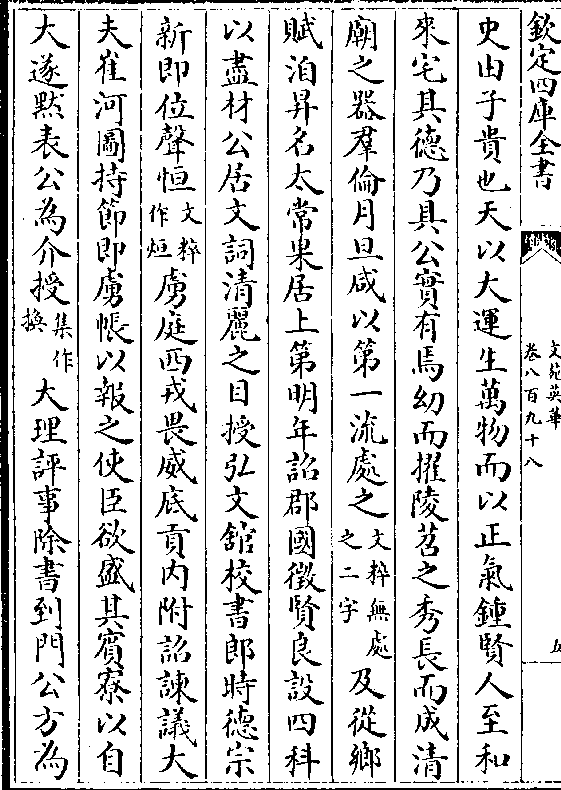 欽定四庫全書
文苑英華
卷八百九十八
五
史由子貴也天以大運生萬物而以正氣鍾賢人至和
來宅其德乃具公實有焉幼而擢陵苕之秀長而成清
廟之器羣倫月旦咸以第一流處之文粹無處之二字及從鄉
賦洎昇名太常果居上第明年詔郡國徵賢良設四科
以盡材公居文詞清麗之目授弘文館校書郎時德宗
新即位聲恒文粹作烜虜庭西戎畏威底貢內附詔諫議大
夫崔河圖持節即虜帳以報之使臣欲盛其賓寮以自
大遂默表公為介授集作換大理評事除書到門公方為